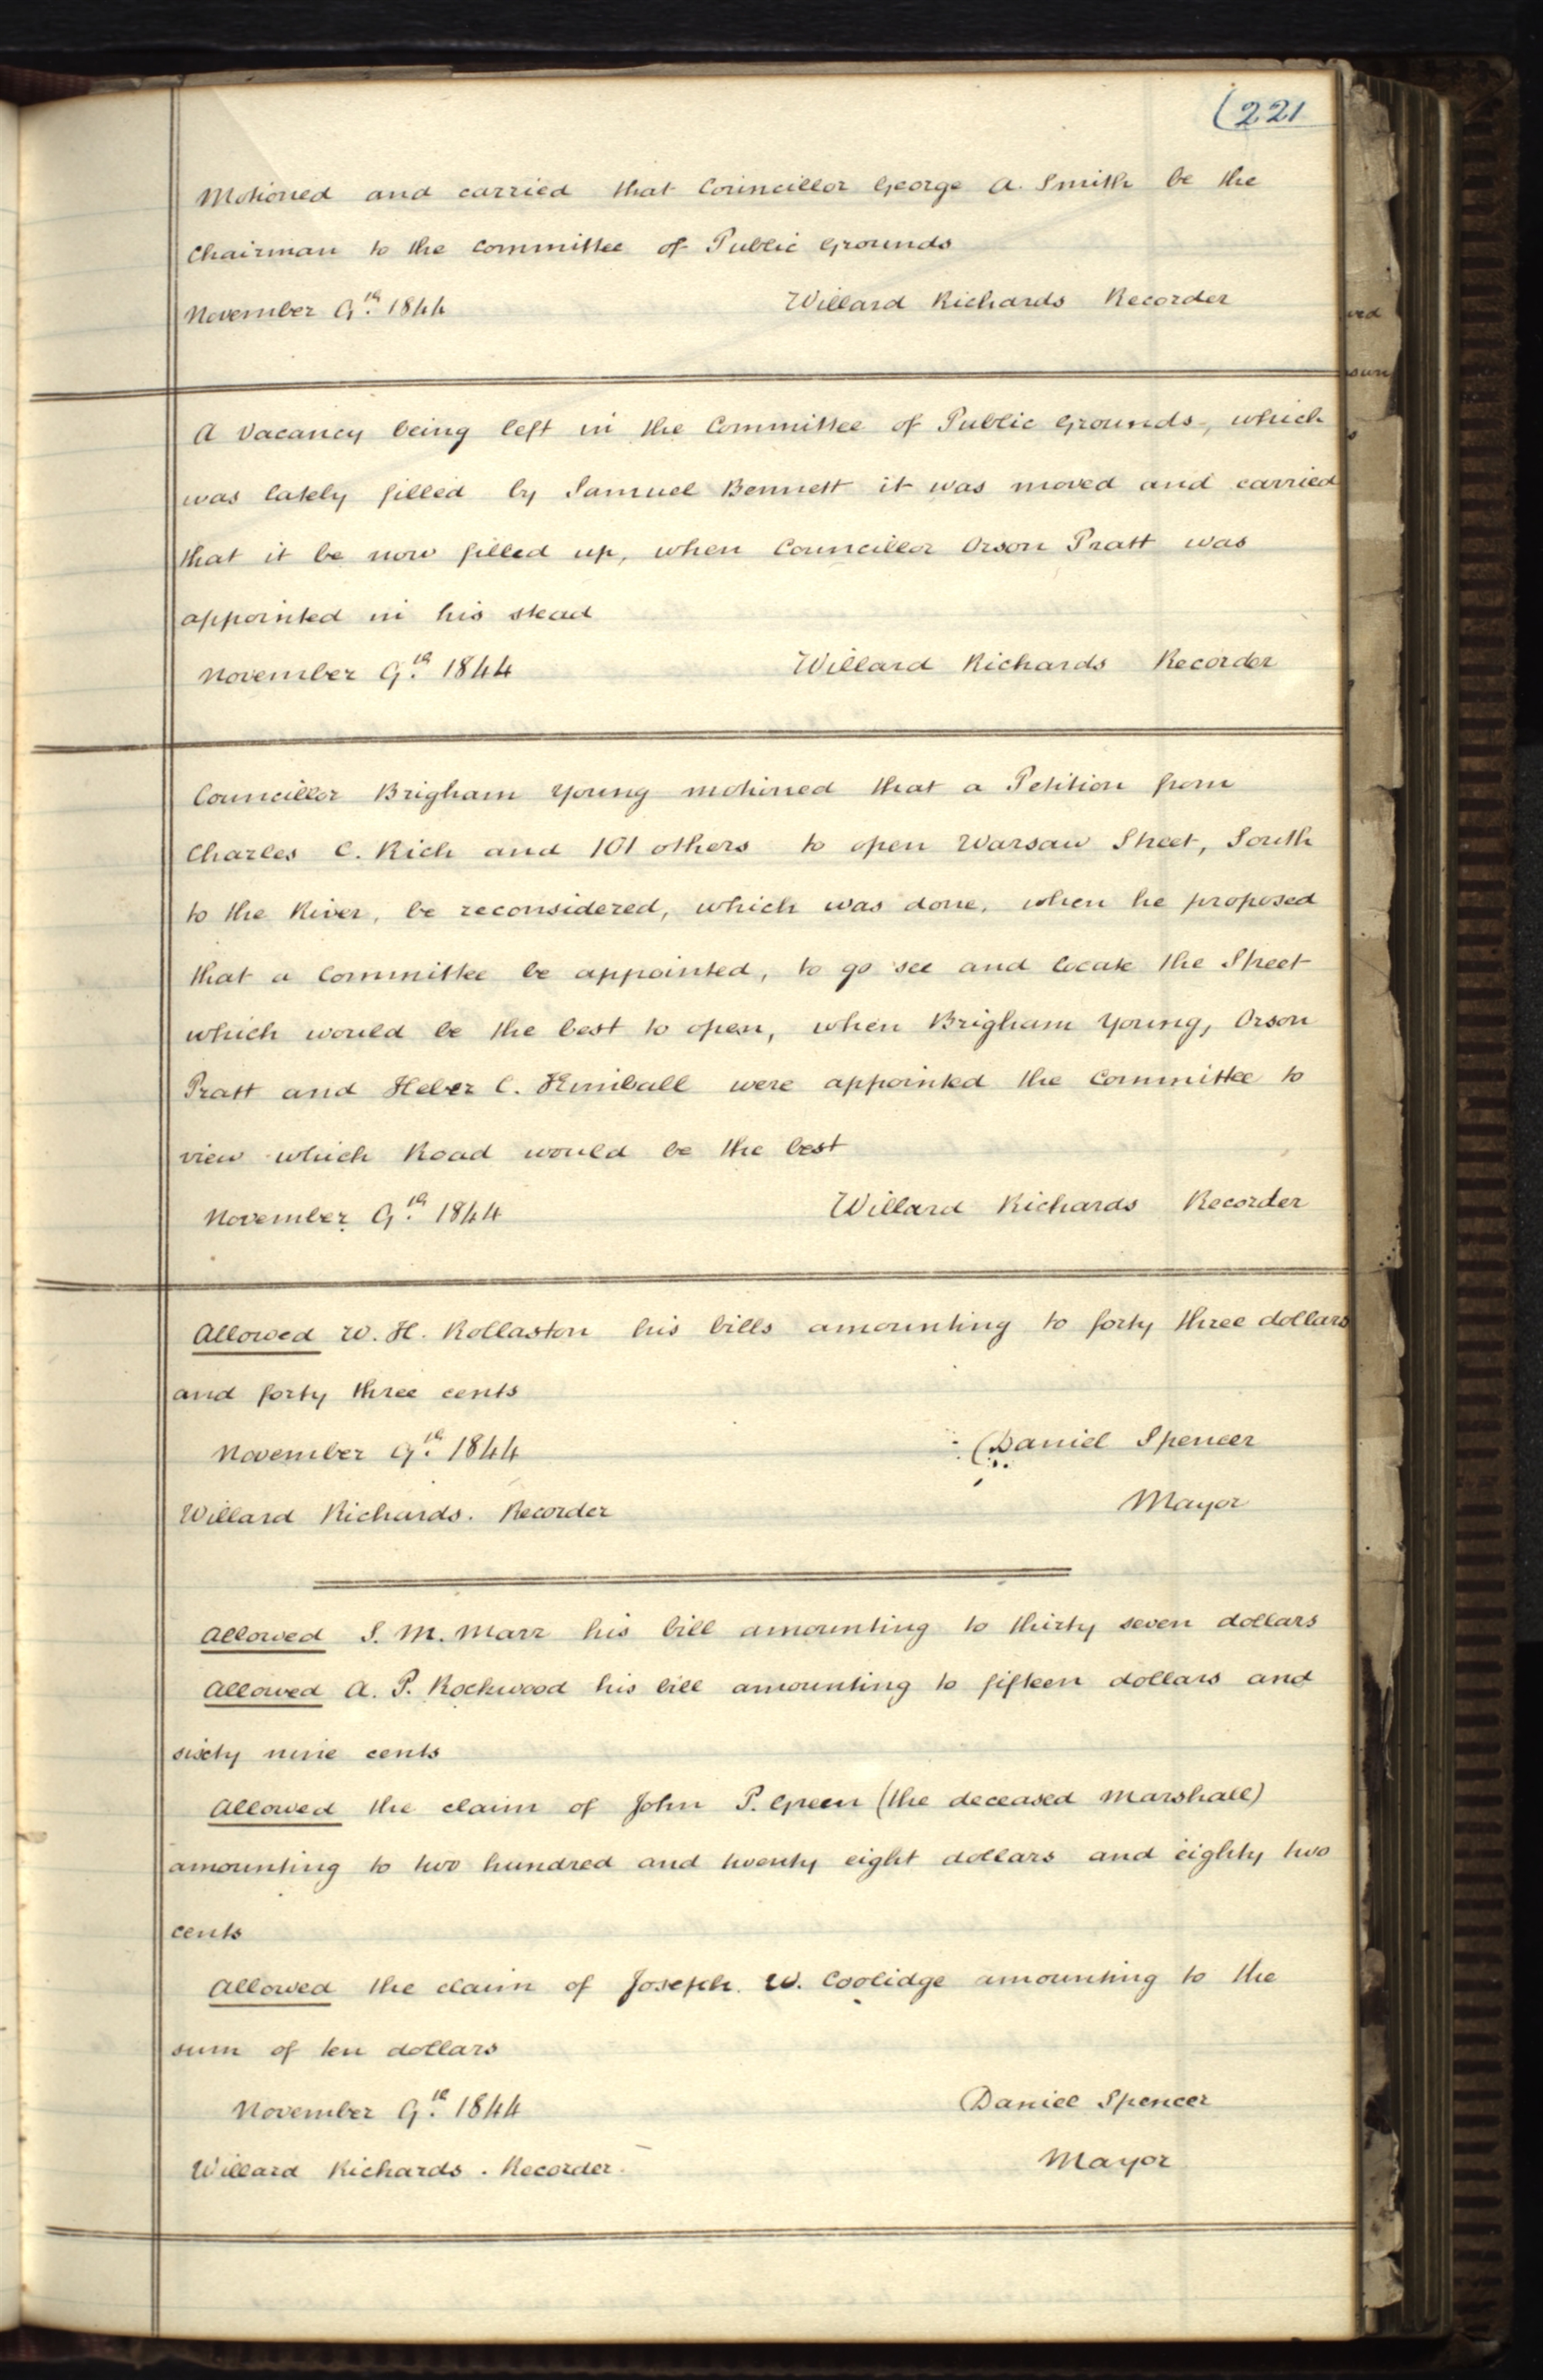 (221
Motioned and carried that Councillor George A. Smith be the
Chairman to the Committee of Public Grounds
November 9th. 1844 Willard Richards Recorder
A Vacancy being left in the Committee of Public Grounds, which
was lately filled by Samuel Bennett it was moved and carried
that it be now filled up, when Councillor Orson Pratt was
appointed in his stead
November 9th. 1844 Willard Richards Recorder
Councillor Brigham Young motioned that a Petition from
Charles C. Rich and 101 others to open Warsaw Street, South
to the River, be reconsidered, which was done, when he proposed
that a Committee be appointed, to go see and locate the Street
which would be the best to open, when Brigham Young, Orson
Pratt and Heber C. Kimball were appointed the Committee to
view which Road would be the best
November 9th. 1844 Willard Richards Recorder
Allowed W. H. Rollaston his bills amounting to forty three dollars
and forty three cents
November 9th. 1844 Daniel Spencer
Willard Richards. Recorder Mayor
Allowed S. M. Marr his bill amounting to thirty seven dollars
Allowed A. P. Rockwood his bill amounting to fifteen dollars and
sixty nine cents
Allowed the claim of John P. Green (the deceased Marshall)
amounting to two hundred and twenty eight dollars and eighty two
cents
Allowed the claim of Joseph. W. Coolidge amounting to the
sum of ten dollars
November 9th. 1844 Daniel Spencer
Willard Richards. Recorder. Mayor